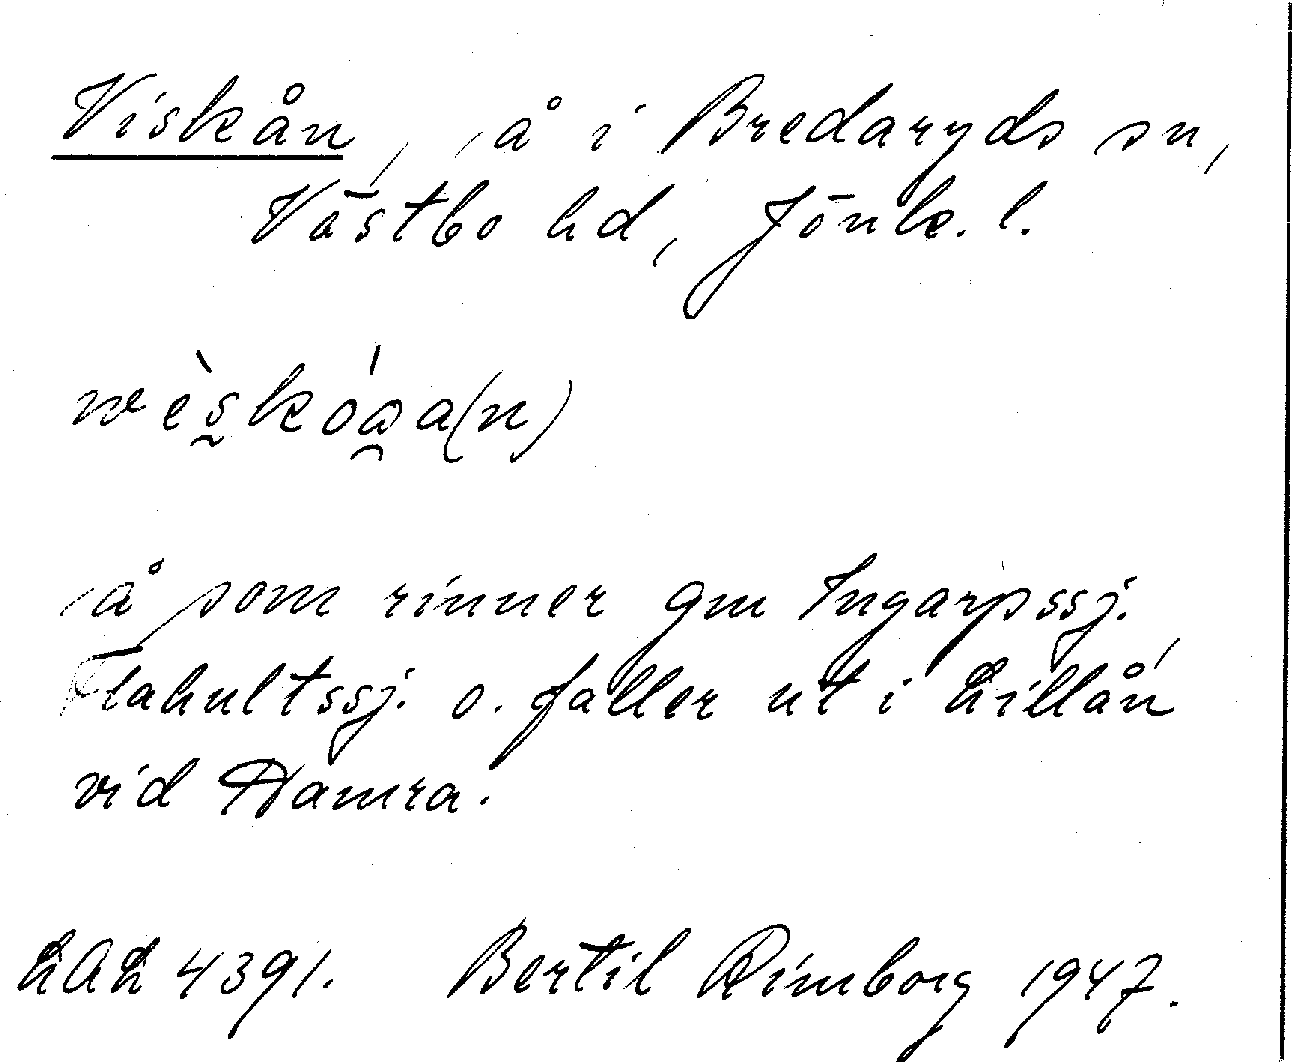 Viskån, å i Bredaryds sn,
Västbo hd, Jönk. l.
wèskóa̯a(n)
å som rinner gm Ingarpssj.
Flahultssj. o. faller ut i Lillån
vid Hamra.
LAL 4391. Bertil Rimborg 1947.